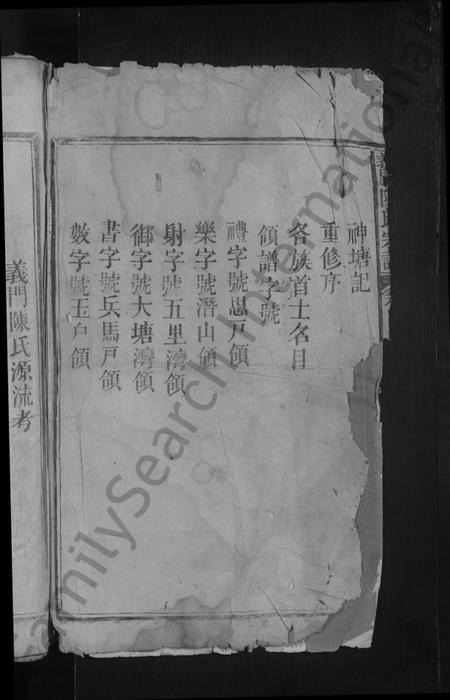 神塘記
重修序
各族首士名目
領譜字號
禮字號思戸領
樂字號潛山領
射字號五里灣領
御字號大塘灣領
書字號兵馬戸領
數字號玉戸領
義門陳氏源流考
FamilySearch International